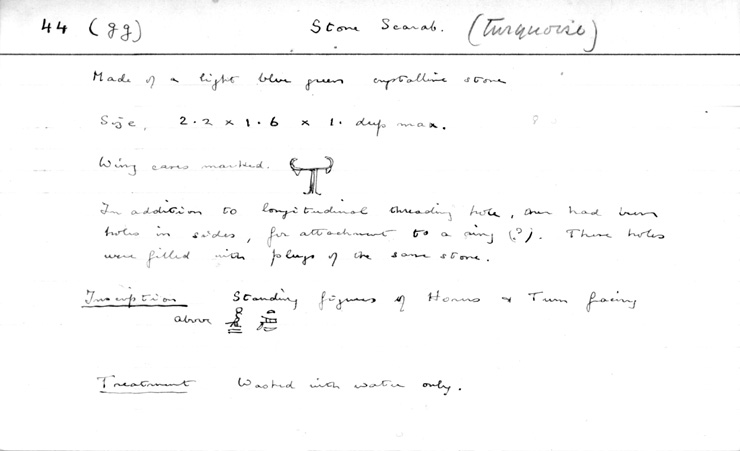 44 (gg) Stone Scarab. (Turquoise)
Made of a light blue green crystalline stone
Size, 2.2 x 1.6 x 1. deep max.
Wing cases marked.
In addition to longitudinal threading hole, there had been
holes in sides, for attachment to a ring (?). These holes
were filled with plugs of the same stone.
Inscription Standing figures of Horus & Tum facing
above
Treatment Washed with water only.